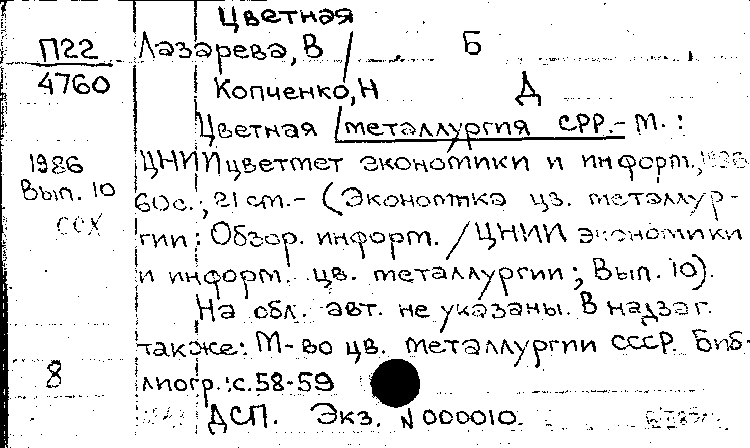 Цветная
П22 Лазарева, В Б
4760 Копченко, Н Д
Цветная металлургия СРР.- М.:
1986 ЦНИИцветмет экономики и информ., 1986
Вып. 10 60с.; 21 см.- (Экономика цв. металлур-
ССХ гии: Обзор. информ. /ЦНИИ экономики
и информ. цв. металлургии; Вып. 10).
На обл. авт. не указаны. В надзаг.
также: М-во цв. металлургии СССР. Биб-
8 лиогр.: с.58-59
ДСП. Экз. N 000010.